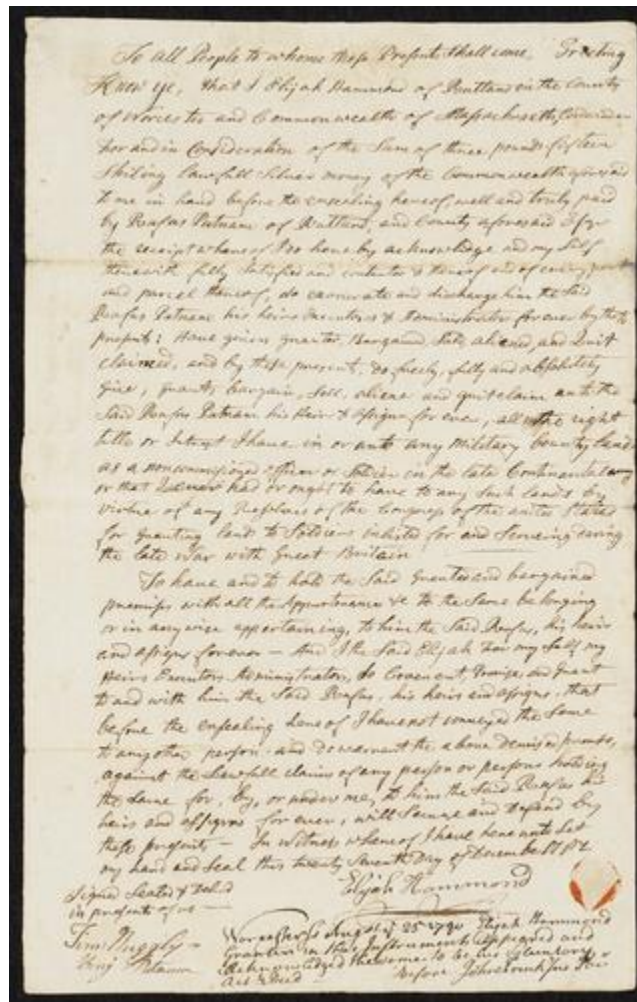 To all People to whome these Presents shall come, Greeting
Know ye, that I Elijah Hammond of Rutland in the County
of Worcester and Commonwealth of Massachusetts,
for and in Consideration of the Sum of three pounds fifteen
Shiling Lawfull Silver money of the Commonwealth aforesaid
to me in hand before the ensealing hereof, well and truly paid
by Rufus Putnam of Rutland, and County aforesaid
the receipt whereof I do hereby acknowledge and my Self
therewith fully Satisfied and
and parcel thereof, do exonerate and discharge him the Said
Rufus Putnam his heirs Executors & Administrators for ever by these
presents: Have given granted, Bargained, aliened, and Quit
claimed, and by these present, Do freely, fully and absolutely
Give, grant, bargain, Sell, aliene and quit claim unto the
Said Rufus Putnam his Heir & assigns for ever, all the right
title or Intrest I have in or unto any Military bounty Lands
as a noncommissioned officer or in the late Continental army
or that I ever had or ought to have to any Such lands by
virtue of any of the Congress of the united States
for granting land to Soldiers inlisted for and Serveing during
the late war with Great Britain
To have and to hold the Said Granted and bargained
premises with all the Appurtenance &c to the Same belonging
or in any wise appertaining, to him the Said Rufus, his heirs
and assigns for ever — And I the Said Elijah for my Self, my
Heirs Executors Administrators, do Covenant, Promise, and Grant
to and with him the Said Rufus, his heirs and assigns, that
before the ensealing hereof I have not conveyed the Same
to any other person and do warrent the above premises,
against the Lawfull claims of any person or persons holding
the Same for, by, or under me, to him the Said Rufus his
heirs and assigns for ever, will Secure and Defend by
these presents — In witness whereof I have here unto Set
my hand and Seal this twenty Seventh Day of December
Elijah Hammond
Signed Sealed &
in presents of us —
Worcester Augst 25 1790 Elijah Hammond
Granter in this Instrument appeared and
Acknowledged the same to be his voluntary
Act & Deed Before